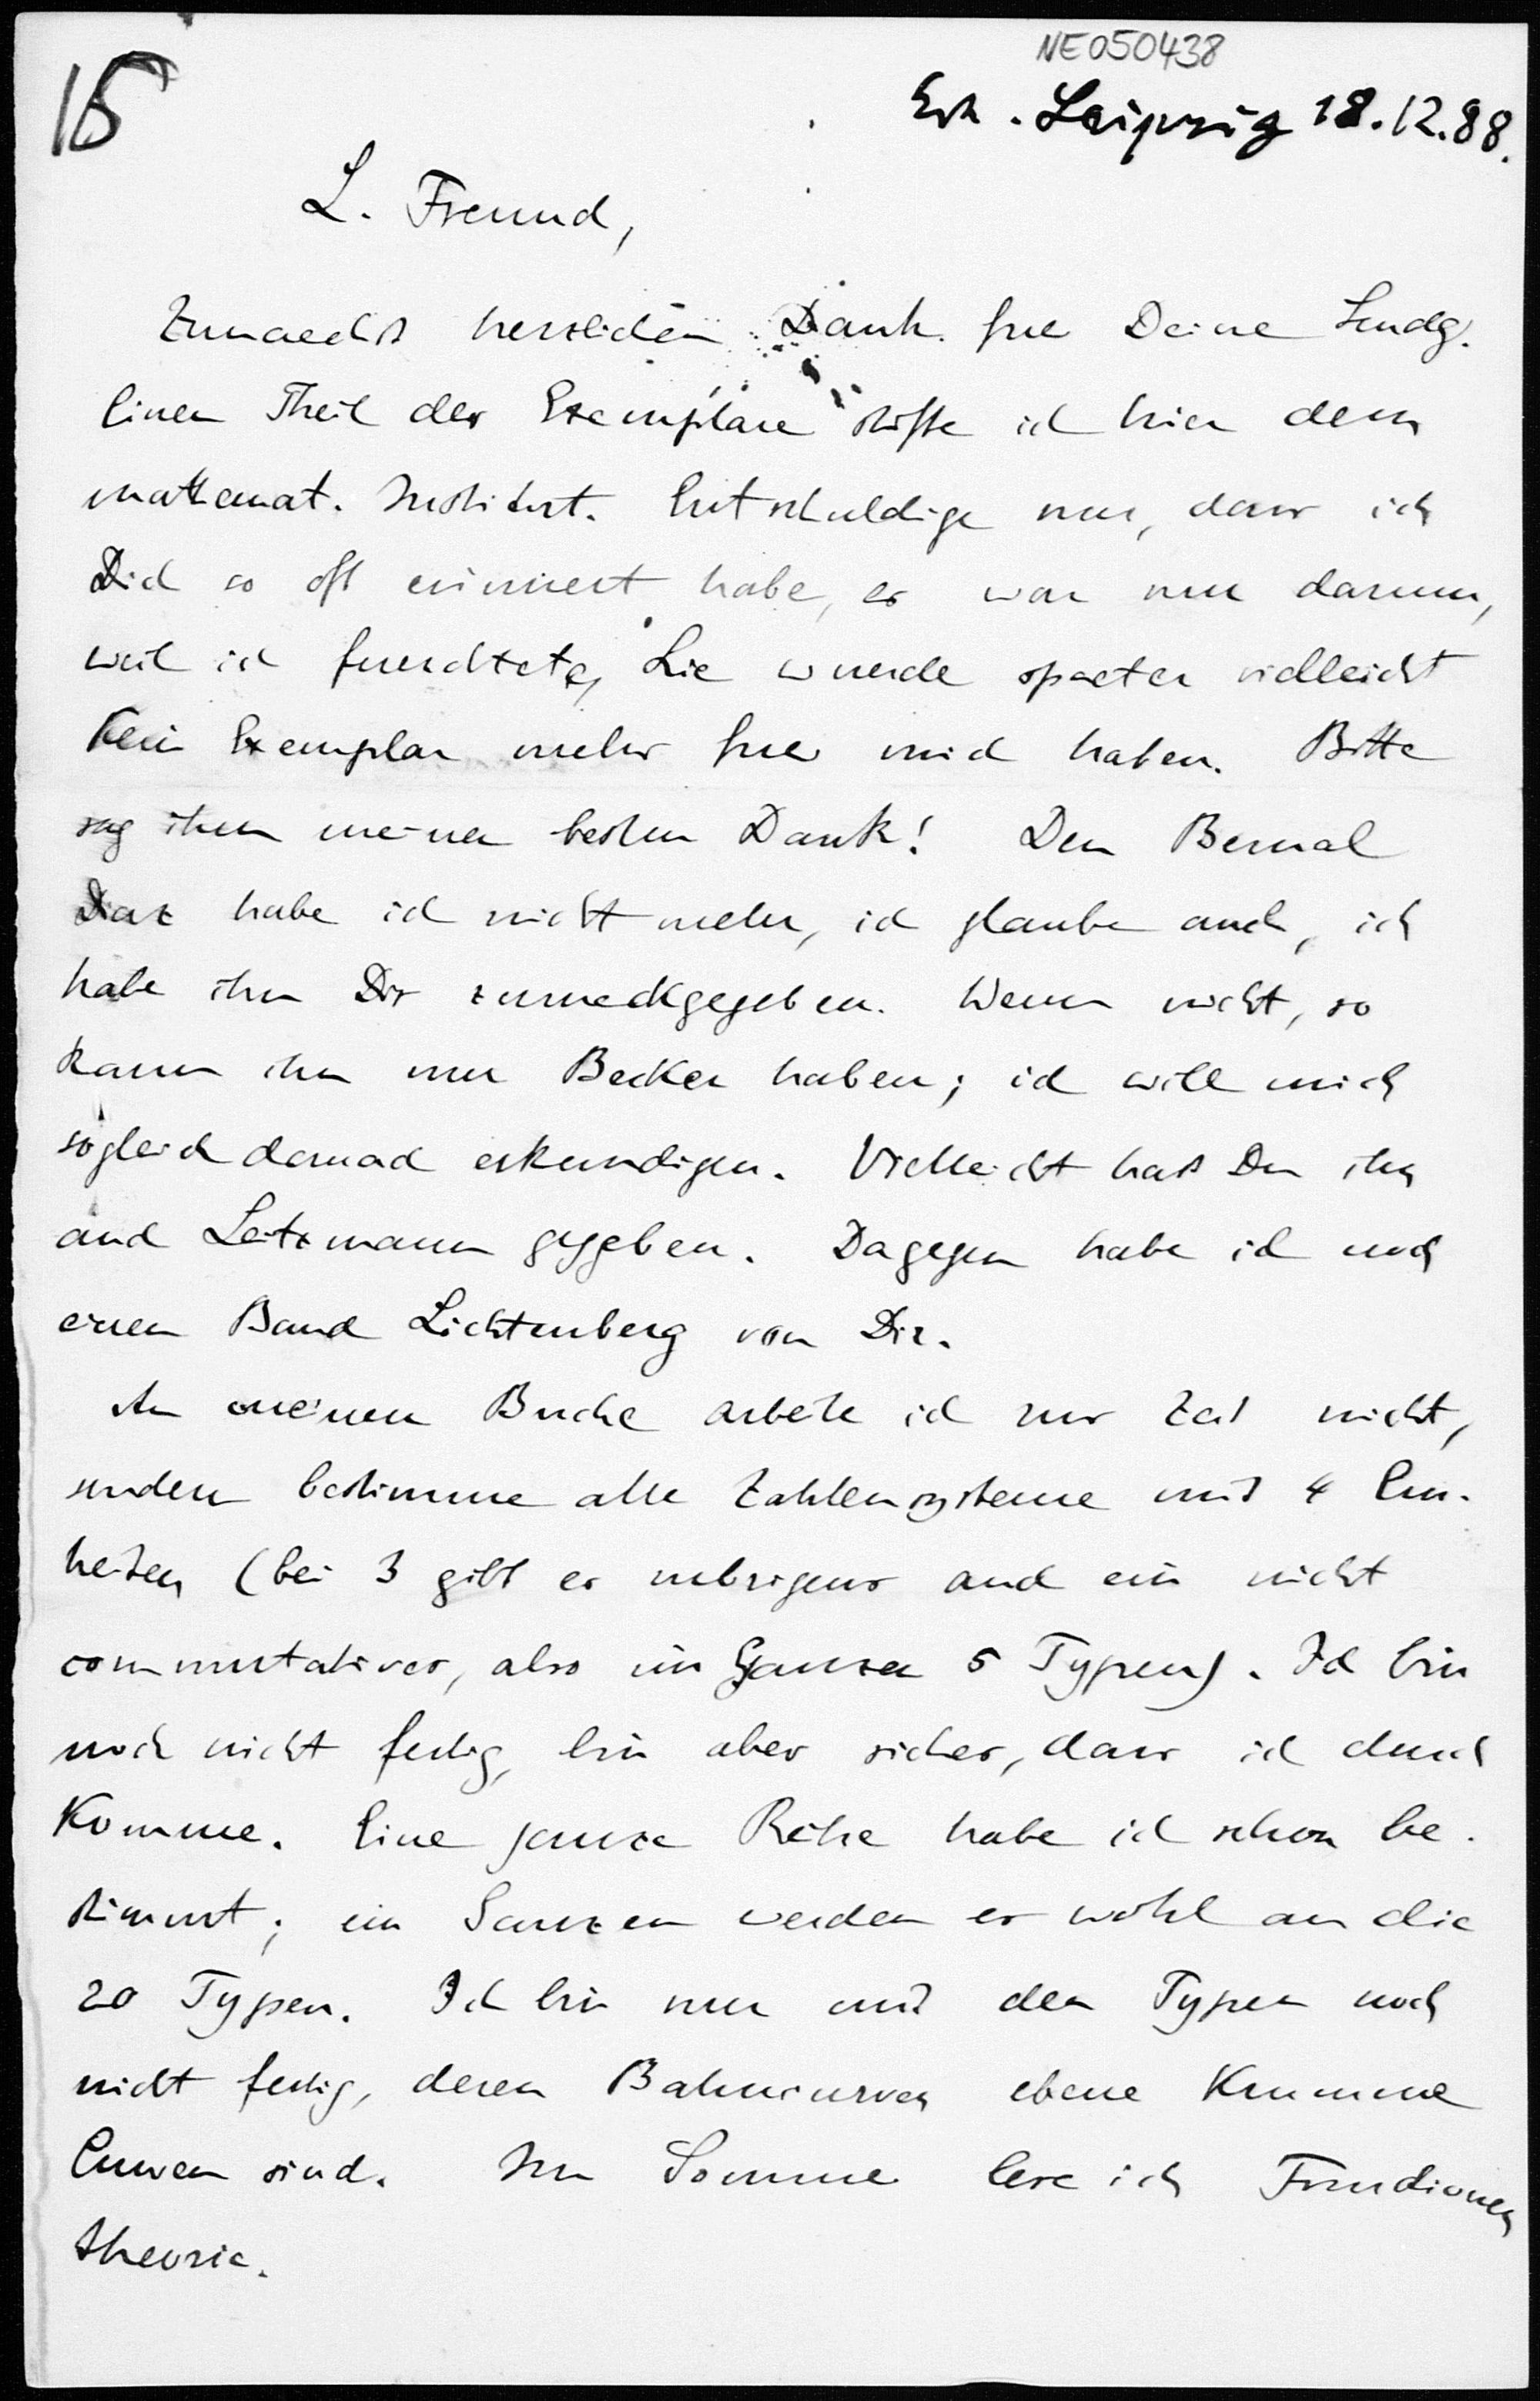 NE050438
15
Leipzig 18.12.88.
L. Freund,
Zunaechst herzlichen Dank fue Deine Sendg.
Einen Theil der Exemplare stifte ich hier dem
mathemat. Institut. Entschuldige nur, dass ich
Dich so oft erinnert habe, es war nur darum,
weil ich fuerchtete, Lie wuerde spaeter vielleicht
kein Exemplar mehr fuer mich haben. Bitte
sag ihm meinen besten Dank! Den Bernal
Diaz habe ich nicht mehr, ich glaube auch, ich
habe ihn Dir zurueckgegeben. Wenn nicht, so
kann ihn nur Becker haben; ich will mich
sogleich darnach erkundigen. Vielleicht hast Du ihn
auch Leitzmann gegeben. Dagegen habe ich noch
einen Band Lichtenberg von Dir.
An meinem Buche arbeite ich zur Zeit nicht,
sondern bestimme alle Zahlensysteme mit 4 Ein-
heiten (bei 3 gibt es uebrigens auch ein nicht
commutatives, also im Ganzen 5 Typen). Ich bin
noch nicht fertig, bin aber sicher, dass ich durch
komme. Eine ganze Reihe habe ich schon be-
stimmt; im Ganzen werden es wohl an die
20 Typen. Ich bin nur mit den Typen noch
nicht fertig, deren Bahncurven ebene krumme
Curven sind. Im Sommer lese ich Functionen
theorie.